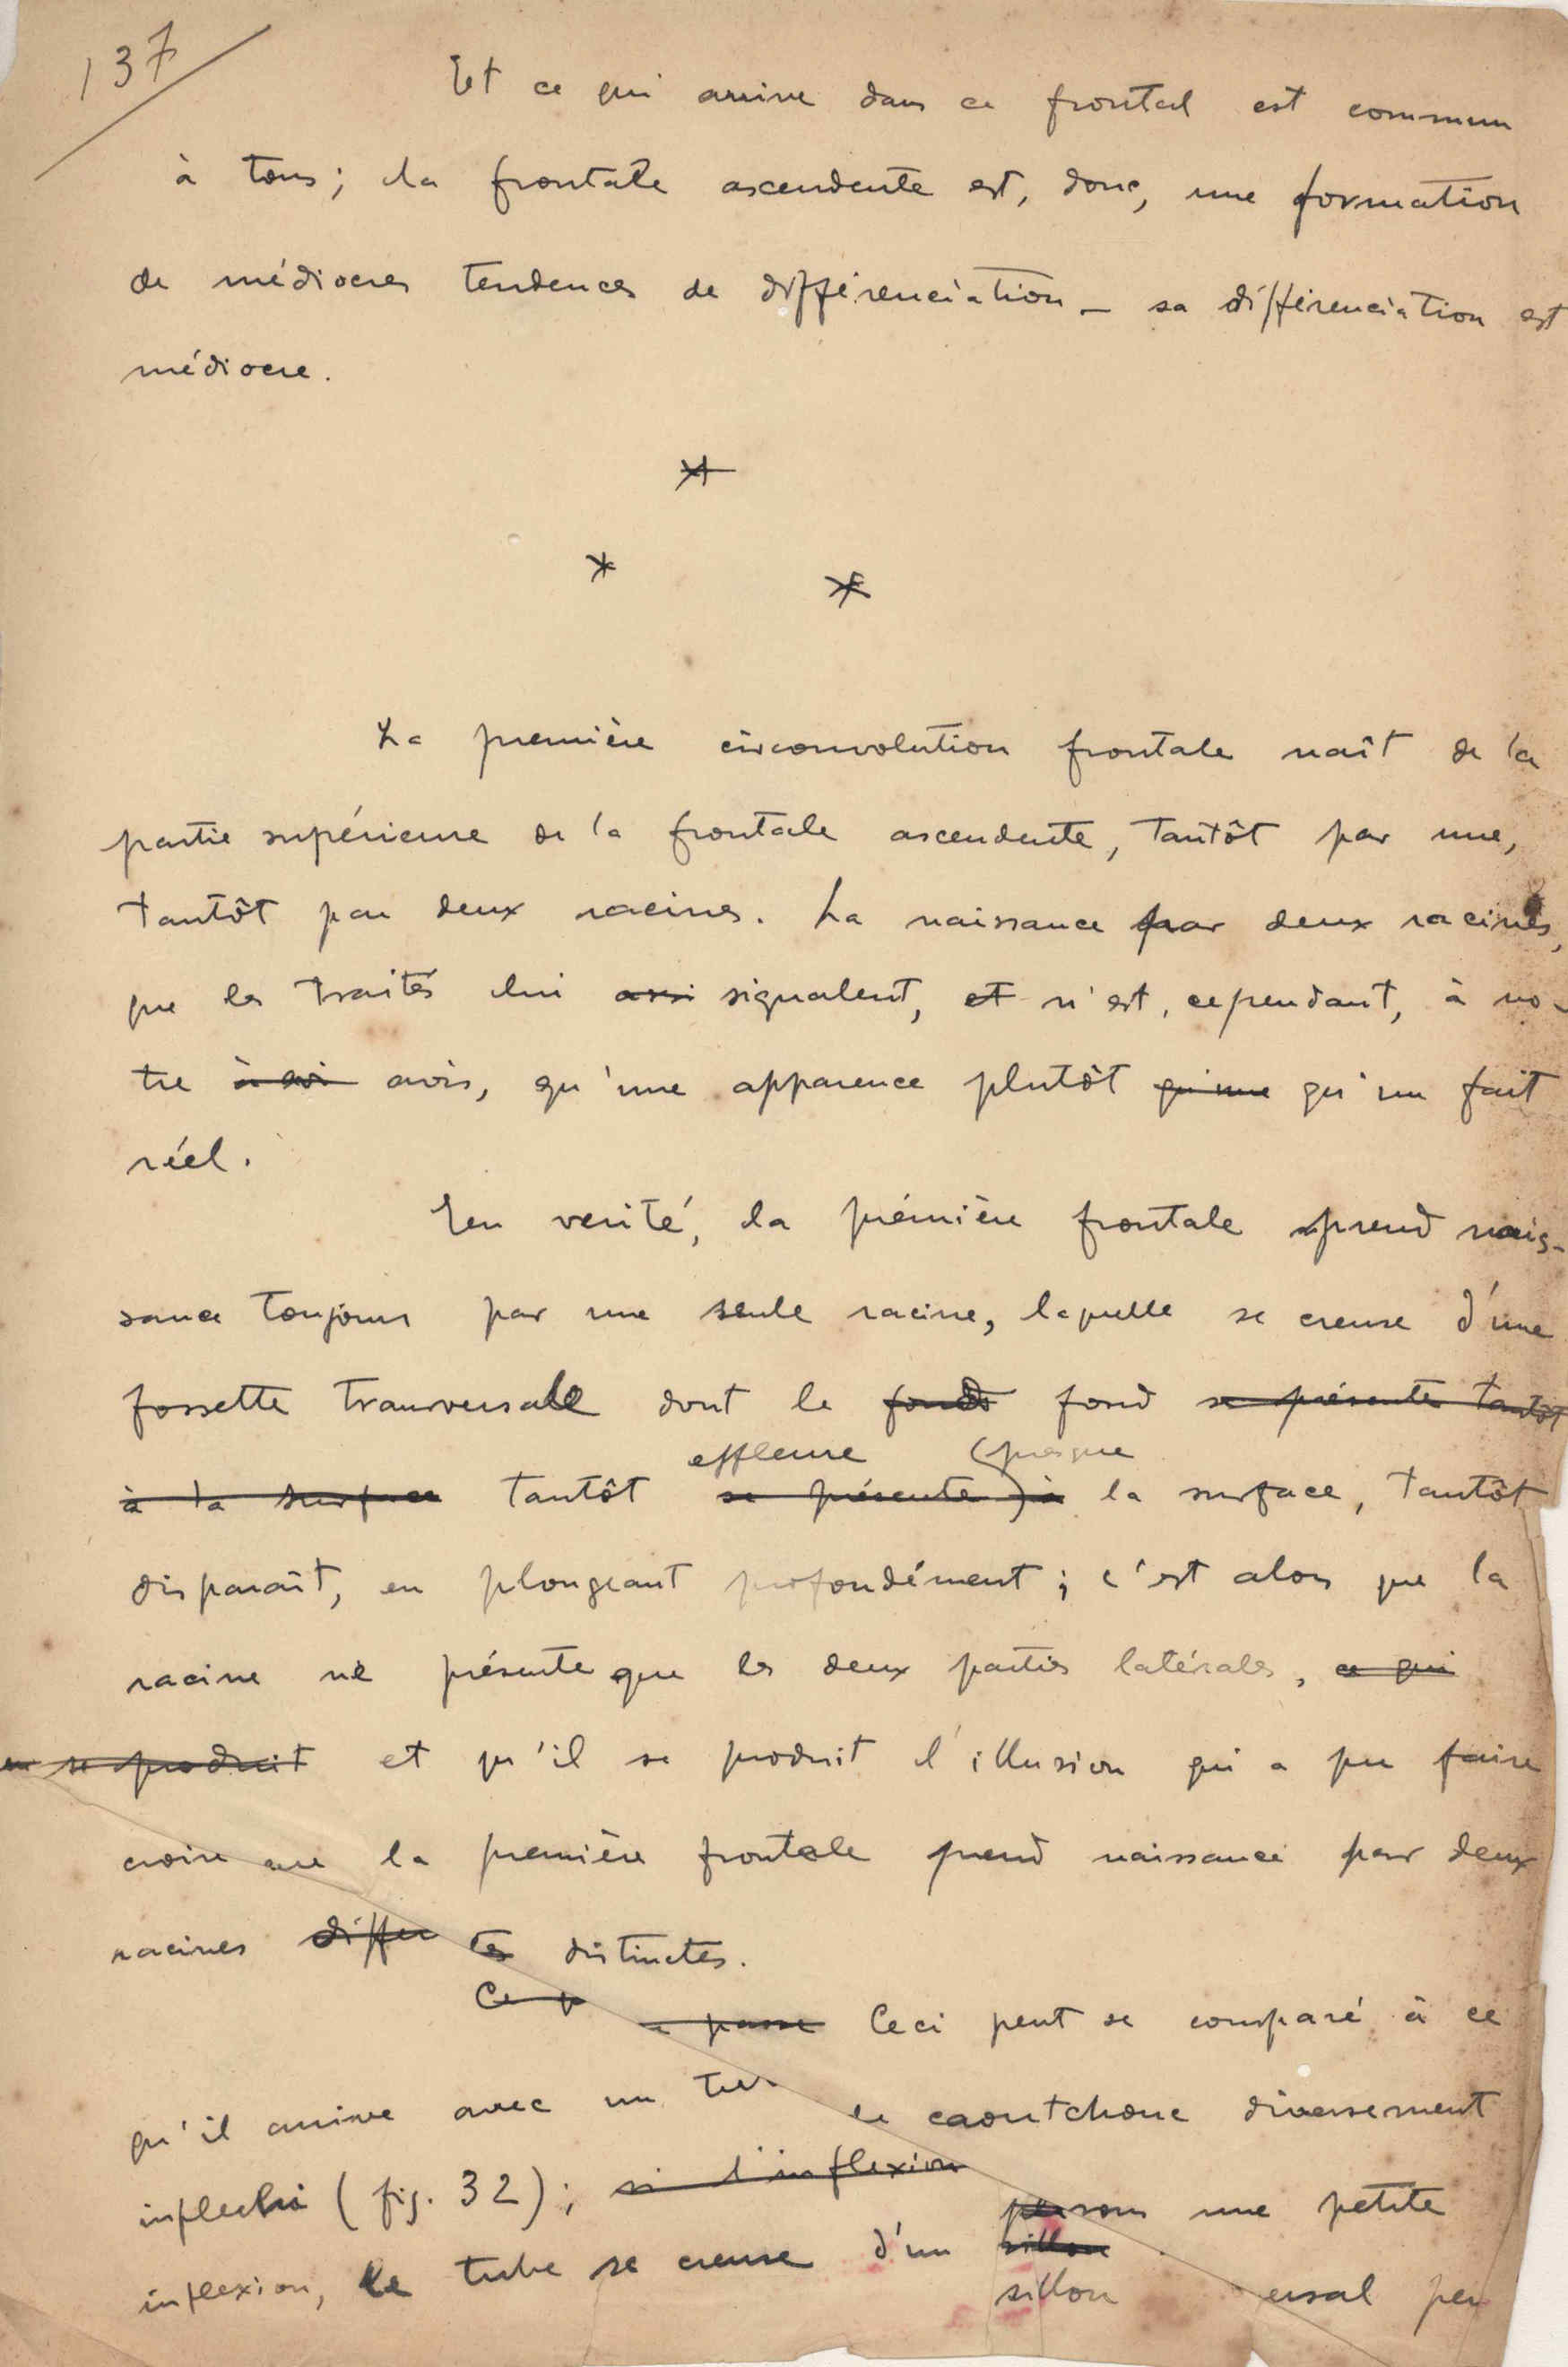 137
Et ce qui arrive dans ce frontal est commun
à tous; la frontale ascendente est, donc, une formation
de médiocres tendences de différenciation – sa différenciation est
médiocre.
*
* *
La première circonvolution frontale naît de la
partie supérieure de la frontale ascendente, tantôt par une,
tantôt par deux racines. La naissance par deux racines,
que les traités lui assi signalent, et n'est, cependant, à no-
tre à avi avis, qu'une apparence plutôt qu'une qu'un fait
réel.
En verité, la prémière frontale prend nais-
sance toujours par une seule racine, laquelle se creuse d'une
fossette transversale dont le fonds fond se présente tantôt
effleure (presque
à la surface tantôt se présente) à la surface, tantôt
disparaît, en plongeant profondément; c'est alors que la
racine ne présente que les deux parties latérales, ce qui
se produit et qu'il se produit l'illusion qui a pu faire
croire que la première frontale prend naissance par deux
racines differ tes distinctes.
Ce p
se passe Ceci peut se comparé à ce
qu'il arrive avec un tu de caoutchouc diversement
inflechi (fig. 32); si l'inflexion
sous une petite
inflexion, le tube se creuse d'un sillon
sillon ersal peu